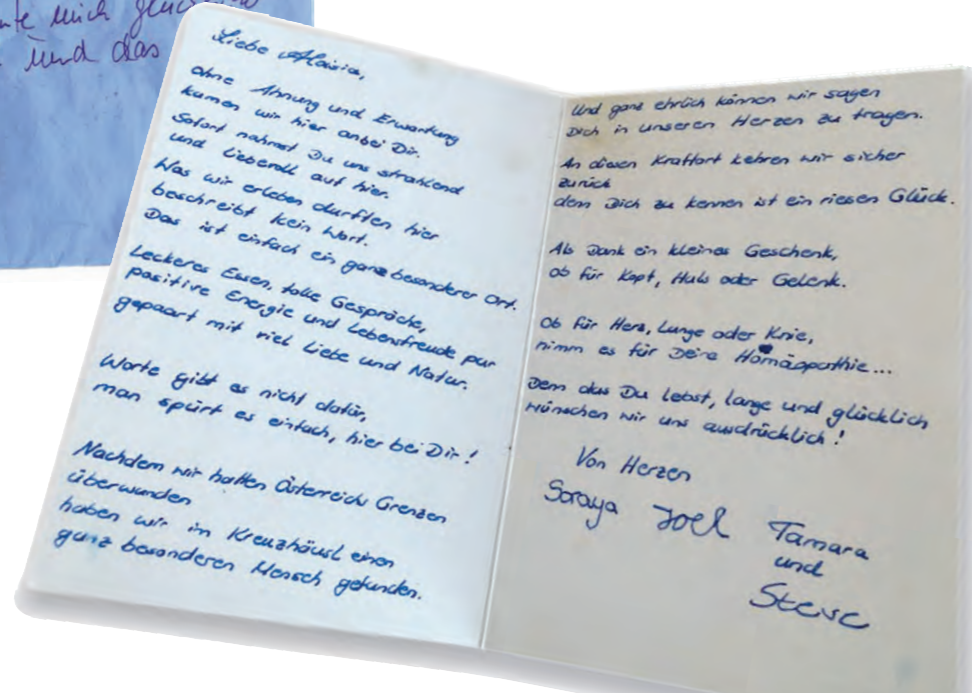 mich
und das
Liebe Aloisia,
ohne Ahnung und Erwartung
kamen wir hier an bei Dir.
Sofort nahmst Du uns strahlend
und liebevoll auf hier.
Was wir erleben durften hier
beschreibt kein Wort.
Das ist einfach ein ganz besonderer Ort.
Leckeres Essen, tolle Gespräche,
positive Energie und Lebensfreude pur
gepaart mit viel Liebe und Natur.
Worte gibt es nicht dafür,
man spürt es einfach, hier bei Dir!
Nachdem wir hatten Österreichs Grenzen
überwunden
haben wir im Kreuzhäusl einen
ganz besonderen Mensch gefunden.
Und ganz ehrlich können wir sagen
Dich in unseren Herzen zu tragen.
An diesen Kraftort kehren wir sicher
zurück
denn Dich zu kennen ist ein riesen Glück.
Als Dank ein kleines Geschenk,
ob für Kopf, Hals oder Gelenk.
Ob für Herz, Lunge oder Knie,
nimm es für Deine Homöopathie...
Denn das Du lebst, lange und glücklich
wünschen wir uns ausdrücklich!
Von Herzen
Soraya Joel Tamara
und
Steve